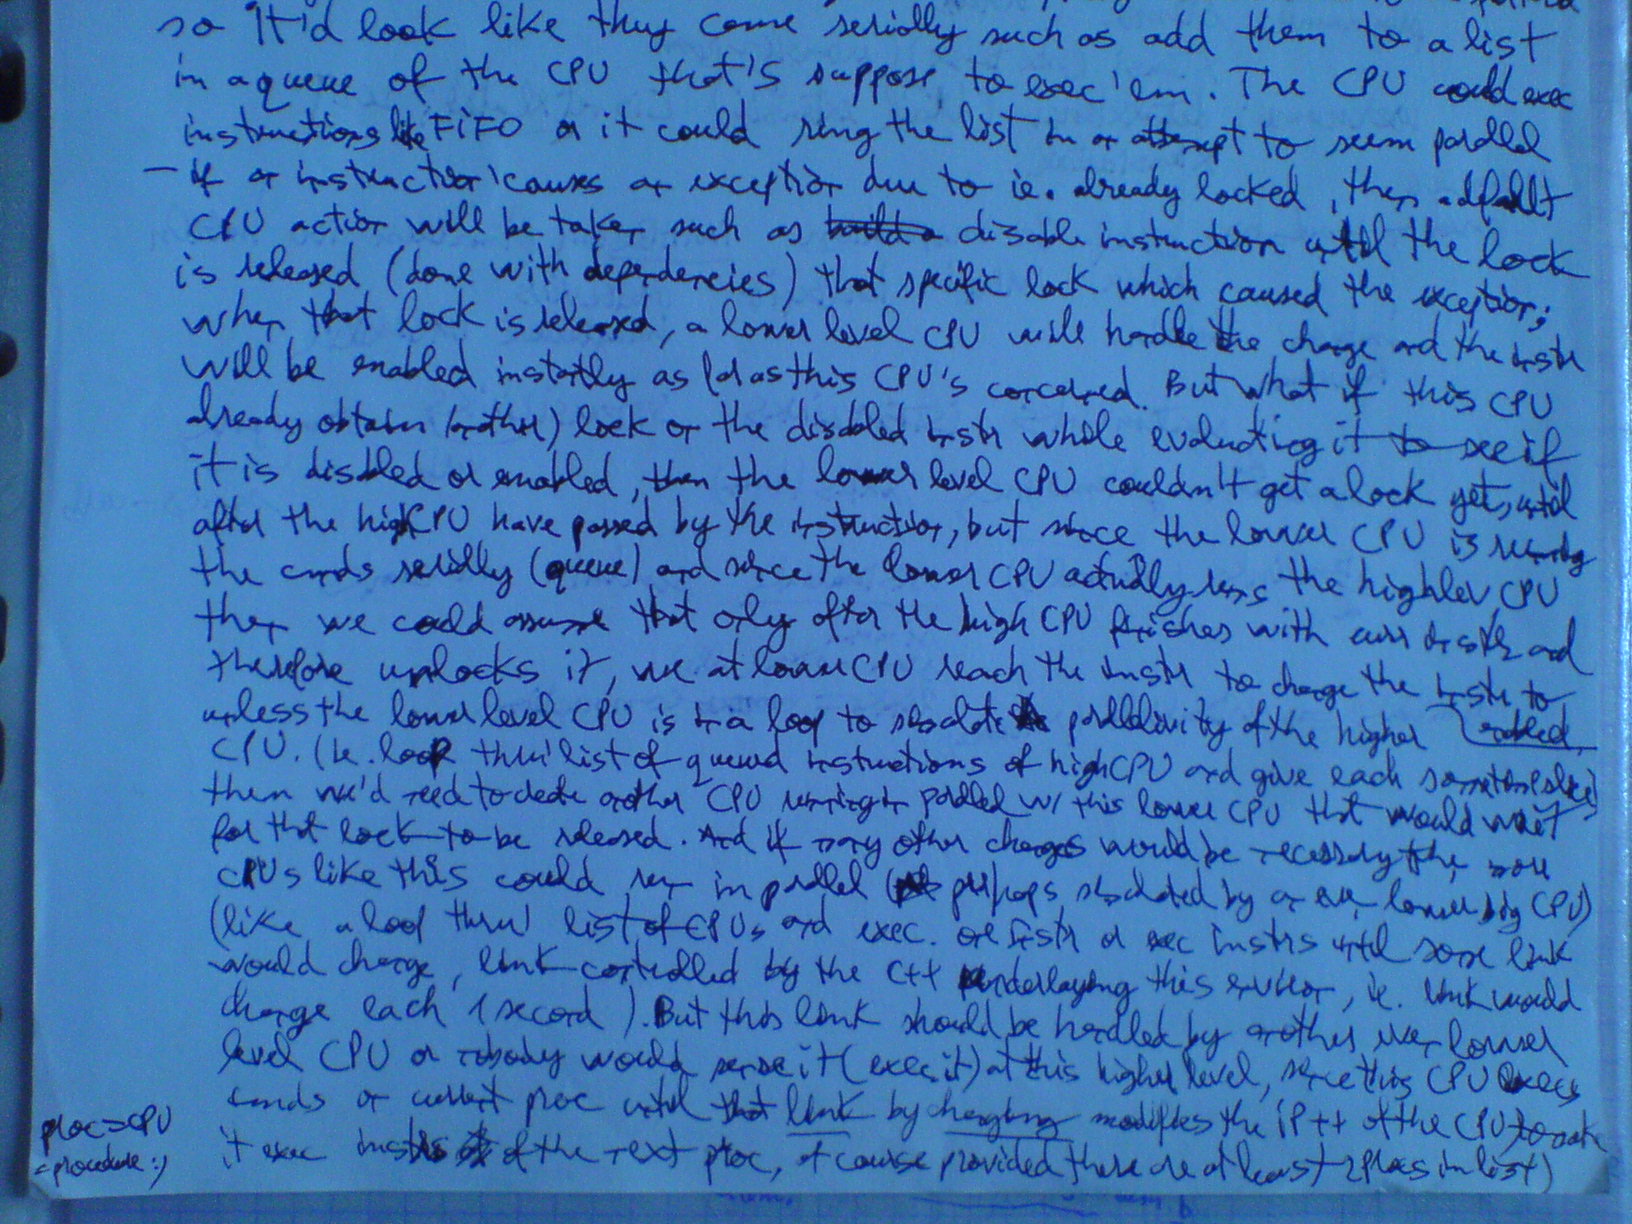 so it'd look like they come serially such as add them to a list
in a queue of the CPU that's suppose to exec 'em. The CPU could exec
instructions like FiFO or it could ring the list in an attempt to seem parallel
- if an instruction causes an exception due to ie. already locked, then a default
CPU action will be taken such as build a disable instruction until the lock
is released (done with dependencies) that specific lock which caused the exception;
when that lock is released, a lower level CPU will handle the change and the instr
will be enabled instantly as far as this CPU's concerned. But what if this CPU
already obtain (another) lock on the disabled instr while evaluating it to see if
it is disabled or enabled, then the lower level CPU couldn't get a lock yet, until
after the high CPU have passed by the instruction, but since the lower CPU is running
the cmds serially (queue) and since the lower CPU actually runs the highlev CPU
then we could assume that only after the high CPU finishes with curr instr and
therefore unlocks it, we at lower CPU reach the instr to change the instr to
enabled,
unless the lower level CPU is in a loop to simulate the parallelivity of the higher
CPU. (ie. loop thru' list of queued instructions of high CPU and give each some timeslice)
then we'd need to create another CPU running in parallel w/ this lower CPU that would wait
for that lock to be released. And if many other changes would be necessary then more
CPUs like this could run in parallel (perhaps simulated by an even lower big CPU)
(like a loop thru' list of CPUs and exec. one instr or exec instrs until some link
would change, link controlled by the C++ underlaying this environ, ie. link would
change each 1 second). But this link should be handled by another even lower
level CPU or nobody would sense it (exec it) at this higher level, since this CPU execs
cmds of current proc until that link by changing modifies the iP++ of the CPU to make
it exec instrs of the next proc, of course provided there are at least 2 procs in list)
proc=CPU
=procedure :)